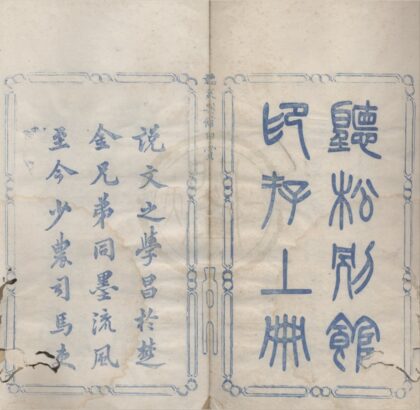 聽松別館
印存上冊
說文之學昌於楚
金兄弟同墨流風
至今少農司馬